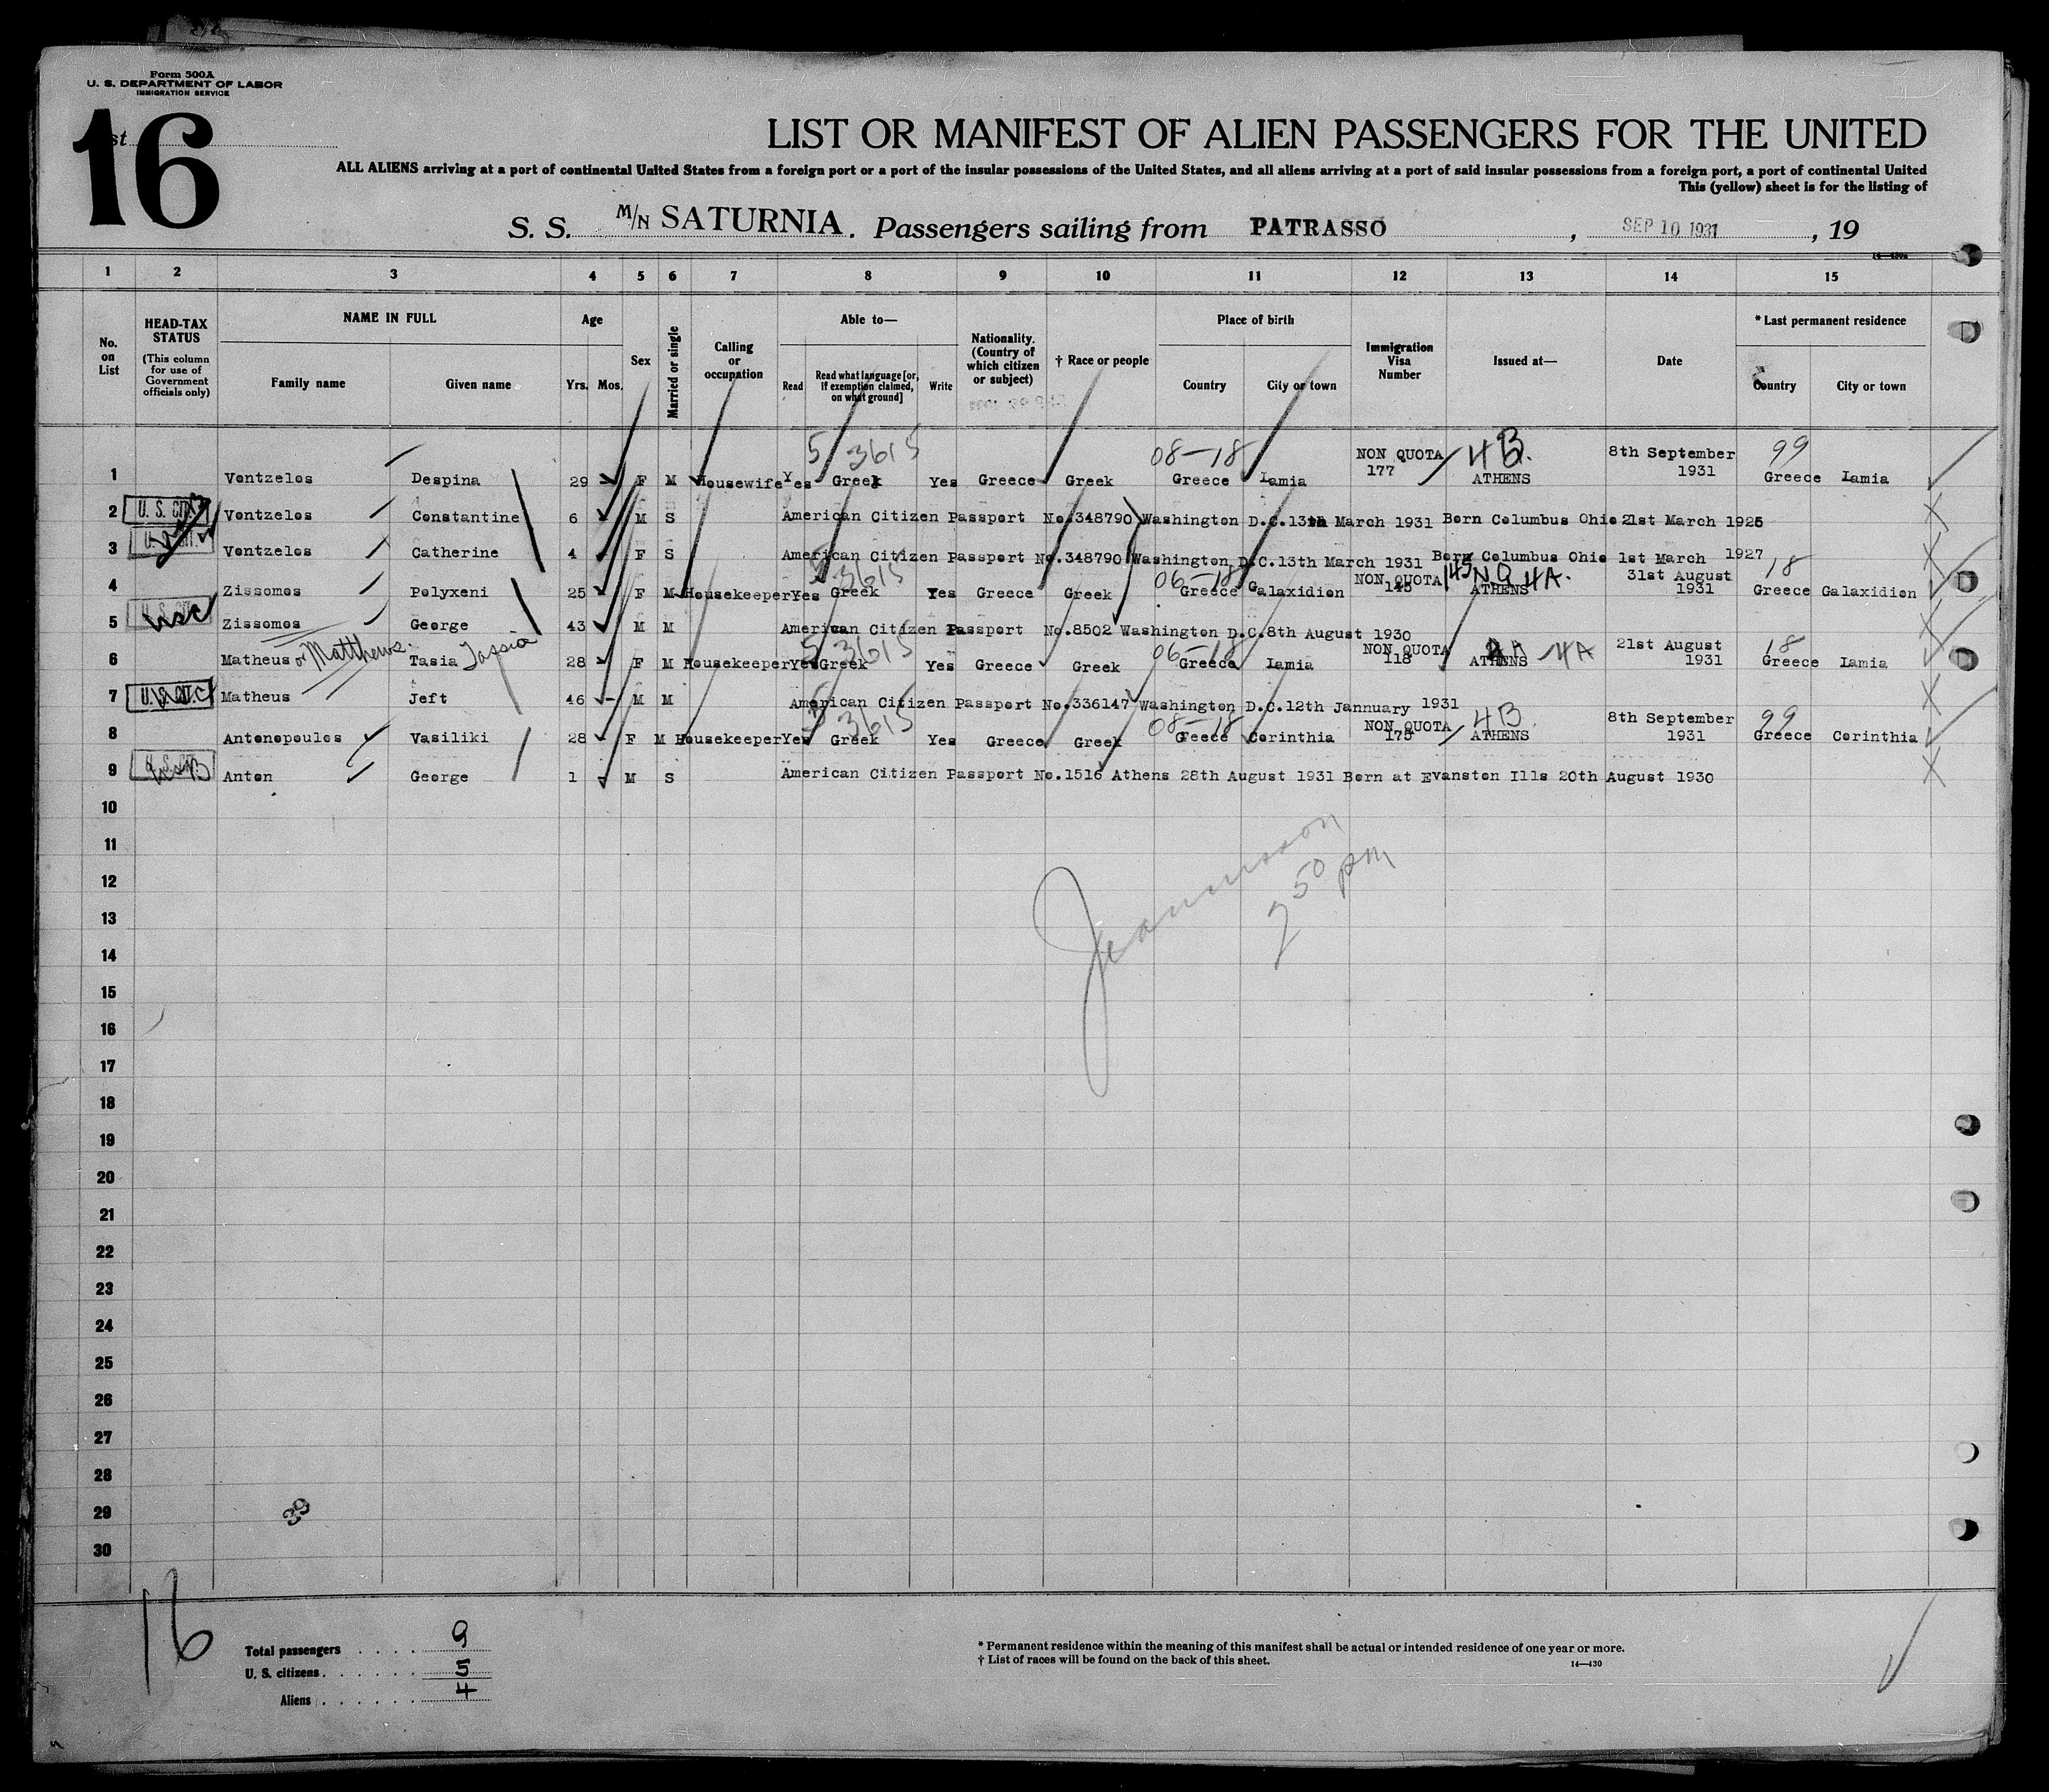 Form 500A
U. S. DEPARTMENT OF LABOR
IMMIGRATION SERVICE
16
LIST OR MANIFEST OF ALIEN PASSENGERS FOR THE UNITED
ALL ALIENS arriving at a port of continental United States from a foreign port or a port of the insular possessions of the United States, and all aliens arriving at a port of said insular possessions from a foreign port, a port of continental United
This (yellow) sheet is for the listing of
S. S. M/N SATURNIA. Passengers sailing from PATRASSO, SEP 10 1931, 19
1 2 3 4 5 6 7 8 9 10 11 12 13 14 15
No. on List
HEAD-TAX STATUS (This column for use of Government officials only)
NAME IN FULL
Family name Given name
Age
Yrs. Mos.
Sex
Married or single
Calling or occupation
Able to—
Read Read what language [or, if exemption claimed, on what ground] Write
Nationality. (Country of which citizen or subject)
† Race or people
Place of birth
Country City or town
Immigration Visa Number
Issued at—
Date
* Last permanent residence
Country City or town
5 3615 08-18 4B. 99
1 Ventzelos Despina 29 F M Housewife Yes Greek Yes Greece Greek Greece Lamia NON QUOTA 177 ATHENS 8th September 1931 Greece Lamia
2 U. S. CIT. Ventzelos Constantine 6 M S American Citizen Passport No.348790 Washington D.C.13th March 1931 Born Columbus Ohio 21st March 1925
3 Ventzelos Catherine 4 F S American Citizen Passport No.348790 Washington D.C.13th March 1931 Born Columbus Ohio 1st March 1927
3615 06-18 145 NQ 4A. 18
4 Zissomos Polyxeni 25 F M Housekeeper Yes Greek Yes Greece Greek Greece Galaxidion NON QUOTA 145 ATHENS 31st August 1931 Greece Galaxidion
5 USC Zissomos George 43 M M American Citizen Passport No.8502 Washington D.C.8th August 1930
5 3615 06-18 4A 18
6 Matheus or Matthews. Tasia Tassia 28 F M Housekeeper Yes Greek Yes Greece Greek Greece Lamia NON QUOTA 118 ATHENS 21st August 1931 Greece Lamia
7 U. S. CIT. Matheus Jeft 46 M M American Citizen Passport No.336147 Washington D.C.12th Jannuary 1931
3615 08-18 4B 99
8 Antonopoulos Vasiliki 28 F M Housekeeper Yes Greek Yes Greece Greek Greece Corinthia NON QUOTA 175 ATHENS 8th September 1931 Greece Corinthia
9 Anton George 1 M S American Citizen Passport No.1516 Athens 28th August 1931 Born at Evanston Ills 20th August 1930
10
11
12
13
14
15
16
17
18
19
20
21
22
23
24
25
26
27
28
29
30
2 50 pm
16
Total passengers . . . . 9
U. S. citizens . . . . . . 5
Aliens . . . . . . 4
* Permanent residence within the meaning of this manifest shall be actual or intended residence of one year or more.
† List of races will be found on the back of this sheet.
14—430